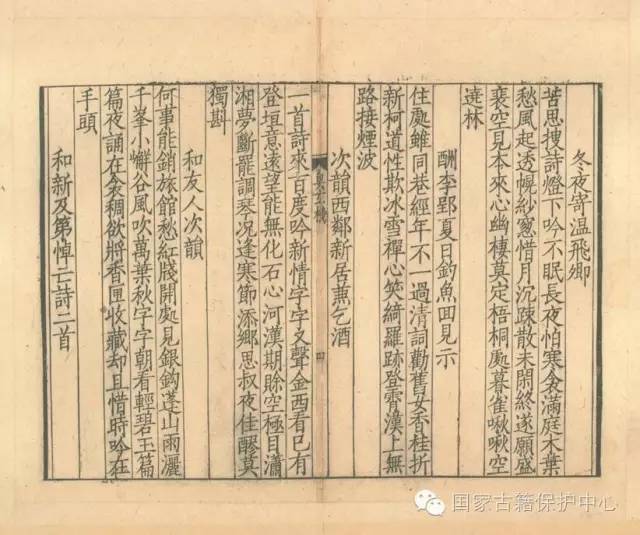 冬夜寄温飛卿
苦思搜詩燈下吟不眠長夜怕寒衾滿庭木葉
愁風起透幌紗窓惜月沉踈散未閑終遂願盛
衰空見本來心幽棲莫定梧桐處暮雀啾啾空
遶林
酬李郢夏日釣魚回見示
住處雖同巷經年不一過清詞勸舊女香桂折
新柯道性欺冰雪禪心笑綺羅跡登霄漢上無
路接煙波
次韻西鄰新居兼乞酒
一首詩來百度吟新情字字又聲金西看已有
登垣意遠望能無化石心河漢期賒空極目瀟
湘夢斷罷調琴况逢寒節添鄉思叔夜佳醪莫
獨斟
和友人次韻
何事能銷旅館愁紅牋開處見銀鈎蓬山雨灑
千峯小嶰谷風吹萬葉秋字字朝看輕碧玉篇
篇夜誦在衾裯欲將香匣收藏却且惜時吟在
手頭
和新及第悼亡詩二首
国家古籍保护中心